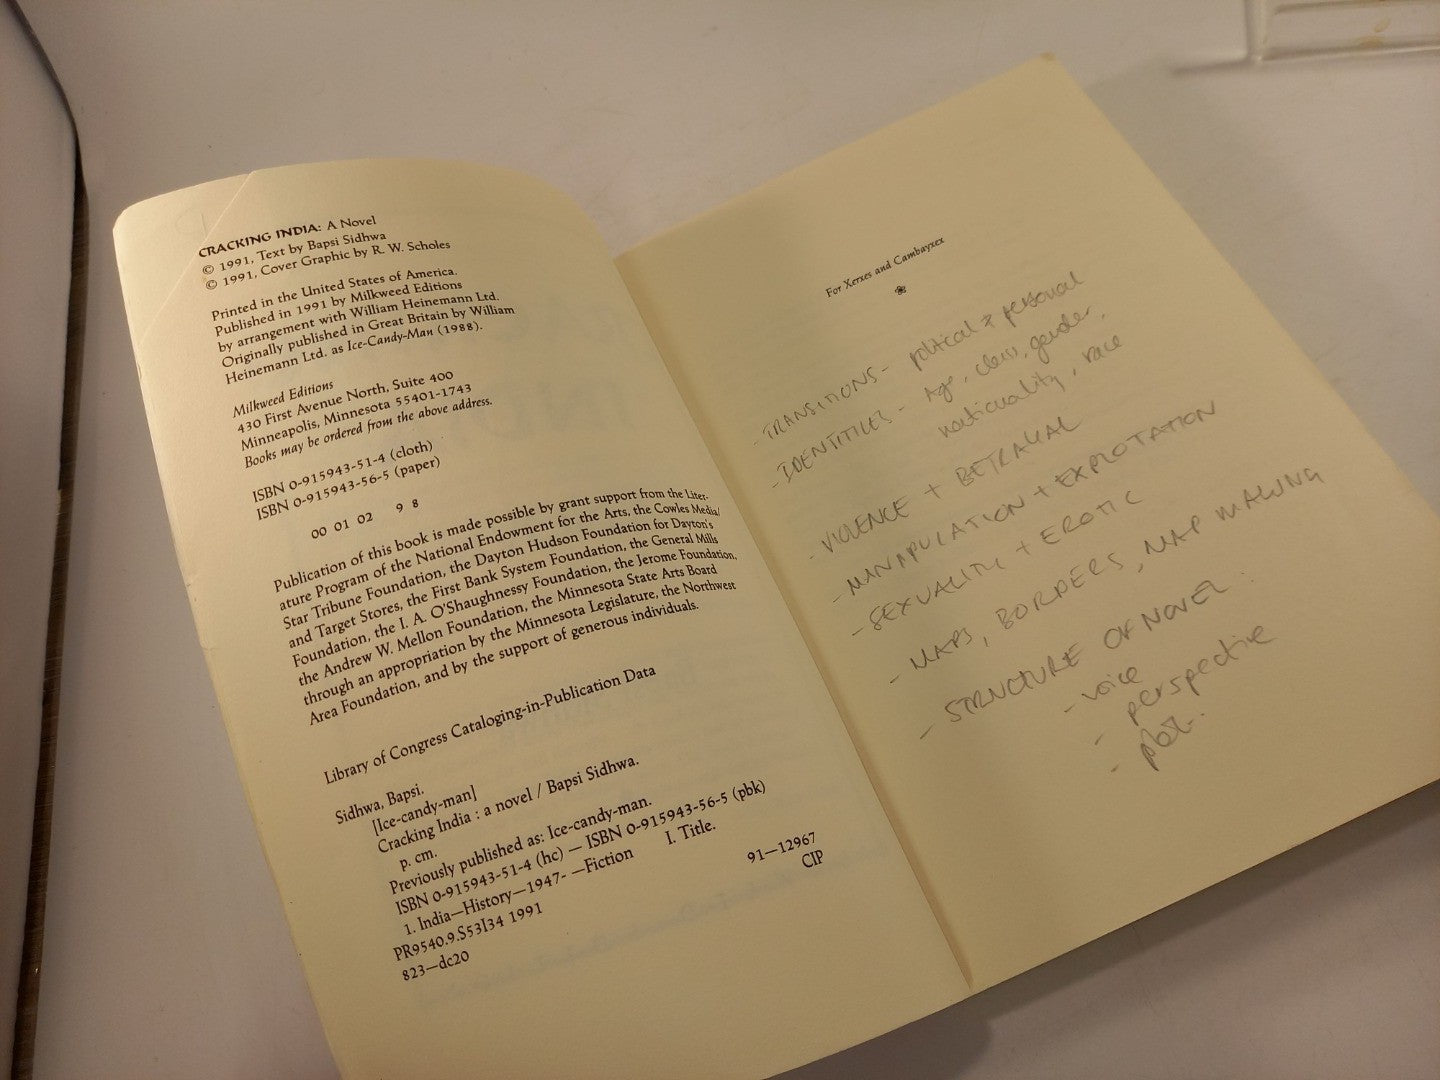 CRACKING INDIA: A Novel
© 1991, Text by Bapsi Sidhwa
© 1991, Cover Graphic by R. W. Scholes
Printed in the United States of America.
Published in 1991 by Milkweed Editions
by arrangement with William Heinemann Ltd.
Originally published in Great Britain by William
Heinemann Ltd. as Ice-Candy-Man (1988).
Milkweed Editions
430 First Avenue North, Suite 400
Minneapolis, Minnesota 55401-1743
Books may be ordered from the above address.
ISBN 0-915943-51-4 (cloth)
ISBN 0-915943-56-5 (paper)
00 01 02 9 8
Publication of this book is made possible by grant support from the Liter-
ature Program of the National Endowment for the Arts, the Cowles Media/
Star Tribune Foundation, the Dayton Hudson Foundation for Dayton's
and Target Stores, the First Bank System Foundation, the General Mills
Foundation, the I. A. O'Shaughnessy Foundation, the Jerome Foundation,
the Andrew W. Mellon Foundation, the Minnesota State Arts Board
through an appropriation by the Minnesota Legislature, the Northwest
Area Foundation, and by the support of generous individuals.
Library of Congress Cataloging-in-Publication Data
Sidhwa, Bapsi.
[Ice-candy-man]
Cracking India : a novel / Bapsi Sidhwa.
p. cm.
Previously published as: Ice-candy-man.
ISBN 0-915943-51-4 (hc) — ISBN 0-915943-56-5 (pbk)
1. India—History—1947- —Fiction I. Title.
PR9540.9.S53I34 1991
823—dc20 91—12967
CIP
For Xerxes and Cambayxex
- TRANSITIONS - political & personal
- IDENTITIES - Age, class, gender,
nationality, race
- VIOLENCE + BETRAYAL
- MANAPULATION + EXPLOTATION
- SEXUALITY + EROTIC
- MAPS, BORDERS, MAP MAKING
- STRUCTURE OF NOVEL
- voice
- perspective
- plot.